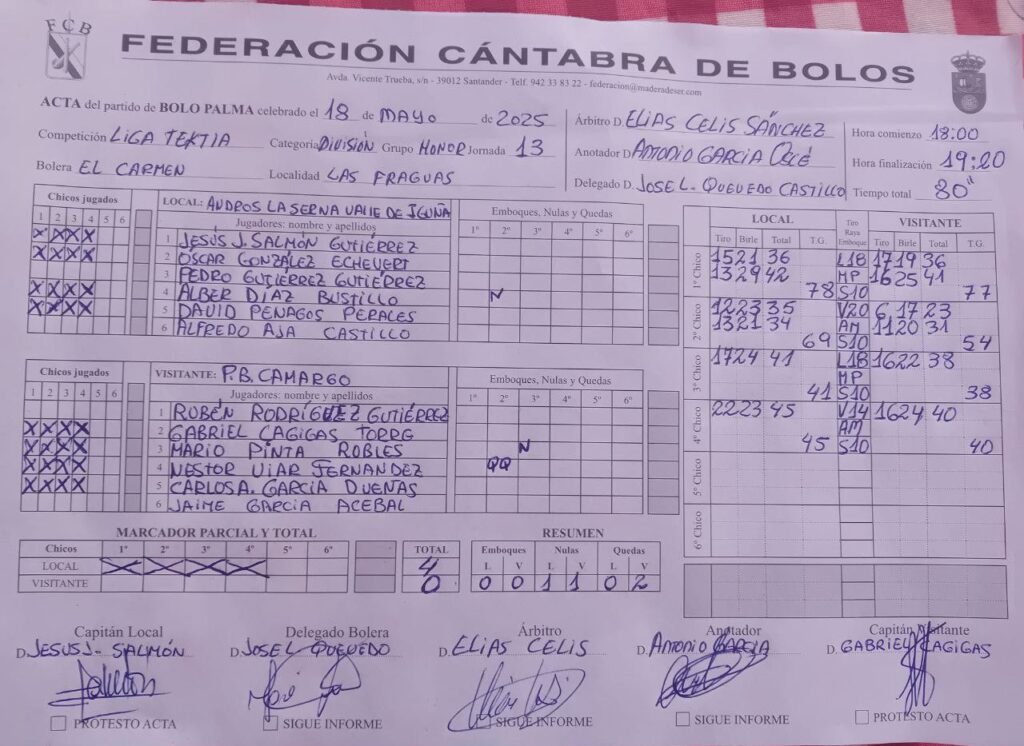 FCB
FEDERACIÓN CÁNTABRA DE BOLOS
Avda. Vicente Trueba, s/n - 39012 Santander - Telf. 942 33 83 22 - federacion@maderadeser.com
ACTA del partido de BOLO PALMA celebrado el 18 de MAYO de 2025
Competición LIGA TEKTIA Categoría DIVISIÓN Grupo HONOR Jornada 13
Bolera EL CARMEN Localidad LAS FRAGUAS
Árbitro D. ELIAS CELIS SÁNCHEZ
Anotador D. ANTONIO GARCIA
Delegado D. JOSE L. QUEVEDO CASTILLO
Hora comienzo 18:00
Hora finalización 19:20
Tiempo total 80
Chicos jugados
1 2 3 4 5 6
X X X X
X X X X
X X X X
X X X X
LOCAL: ANDROS LA SERNA VALLE DE IGUÑA
Jugadores: nombre y apellidos
1 JESÚS J. SALMÓN GUTIÉRREZ
2 ÓSCAR GONZÁLEZ ECHEVERT
3 PEDRO GUTIÉRREZ GUTIÉRREZ
4 ALBER DÍAZ BUSTILLO
5 DAVID PENAGOS PERALES
6 ALFREDO AJA CASTILLO
Emboques, Nulas y Quedas
1º 2º 3º 4º 5º 6º
N
Chicos jugados
1 2 3 4 5 6
X X X X
X X X X
X X X X
X X X X
VISITANTE: P.B. CAMARGO
Jugadores: nombre y apellidos
1 RUBÉN RODRÍGUEZ GUTIÉRREZ
2 GABRIEL CAGIGAS
3 MARIO PINTA ROBLES
4 NESTOR VIAR FERNANDEZ
5 CARLOS A. GARCIA DUEÑAS
6 JAIME GARCIA ACEBAL
Emboques, Nulas y Quedas
1º 2º 3º 4º 5º 6º
N
QQ
LOCAL Tiro Raya Emboque VISITANTE
Tiro Birle Total T.G. Tiro Birle Total T.G.
1º Chico
15 21 36 L18 17 19 36
13 29 42 MP 16 25 41
78 S10 77
2º Chico
12 23 35 V20 6 17 23
13 21 34 AM 11 20 31
69 S10 54
3º Chico
17 24 41 L18 16 22 38
MP
41 S10 38
4º Chico
22 23 45 V14 16 24 40
AM
45 S10 40
5º Chico
6º Chico
MARCADOR PARCIAL Y TOTAL
Chicos 1º 2º 3º 4º 5º 6º TOTAL
LOCAL X X X X 4
VISITANTE 0
RESUMEN
Emboques Nulas Quedas
L V L V L V
0 0 1 1 0 2
Capitán Local
D. JESUS J. SALMÓN
PROTESTO ACTA
Delegado Bolera
D. JOSE L QUEVEDO
SIGUE INFORME
Árbitro
D. ELIAS CELIS
SIGUE INFORME
Anotador
D. ANTONIO GARCIA
SIGUE INFORME
Capitán Visitante
D. GABRIEL CAGIGAS
PROTESTO ACTA